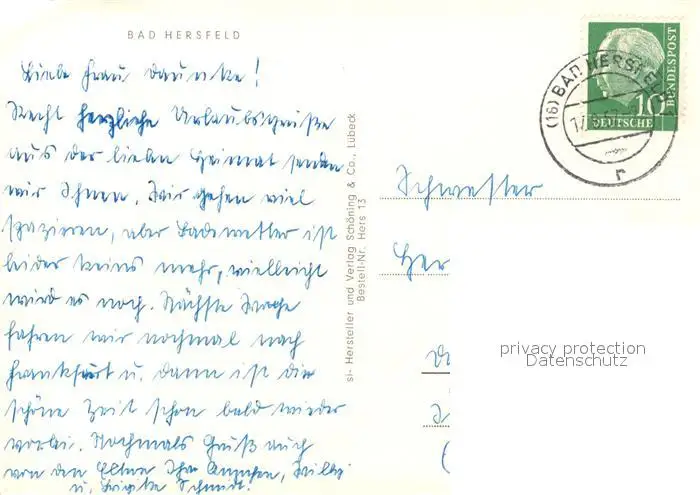 BAD HERSFELD
Liebe Frau Daunke!
Recht herzliche Urlaubsgrüße
aus der lieben Heimat senden
wir Ihnen. Wir gehen viel
spazieren, aber Badewetter ist
leider keins mehr, vielleicht
wird es noch. Nächste Woche
fahren wir nochmal nach
Frankfurt u. dann ist die
schöne Zeit schon bald wieder
vorbei. Nochmals Gruß auch
von den Eltern Ihr Annchen, Willy
u. Brigitte Schmidt.
si- Hersteller und Verlag Schöning & Co., Lübeck
Bestell-Nr. Hers 13
(16) BAD HERSFELD
r
10
DEUTSCHE
BUNDESPOST
Schwester
Her
privacy protection
Datenschutz